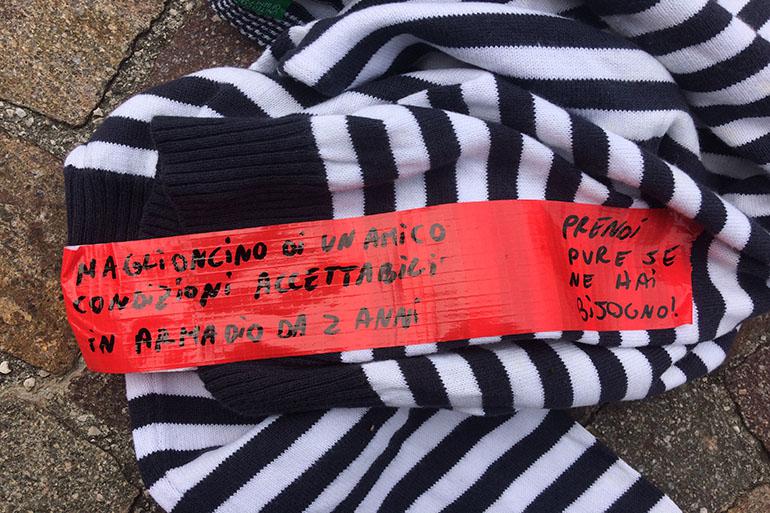 MAGLIONCINO DI UN AMICO
CONDIZIONI ACCETTABILI
IN ARMADIO DA 2 ANNI
PRENDI
PURE SE
NE HAI
BISOGNO!